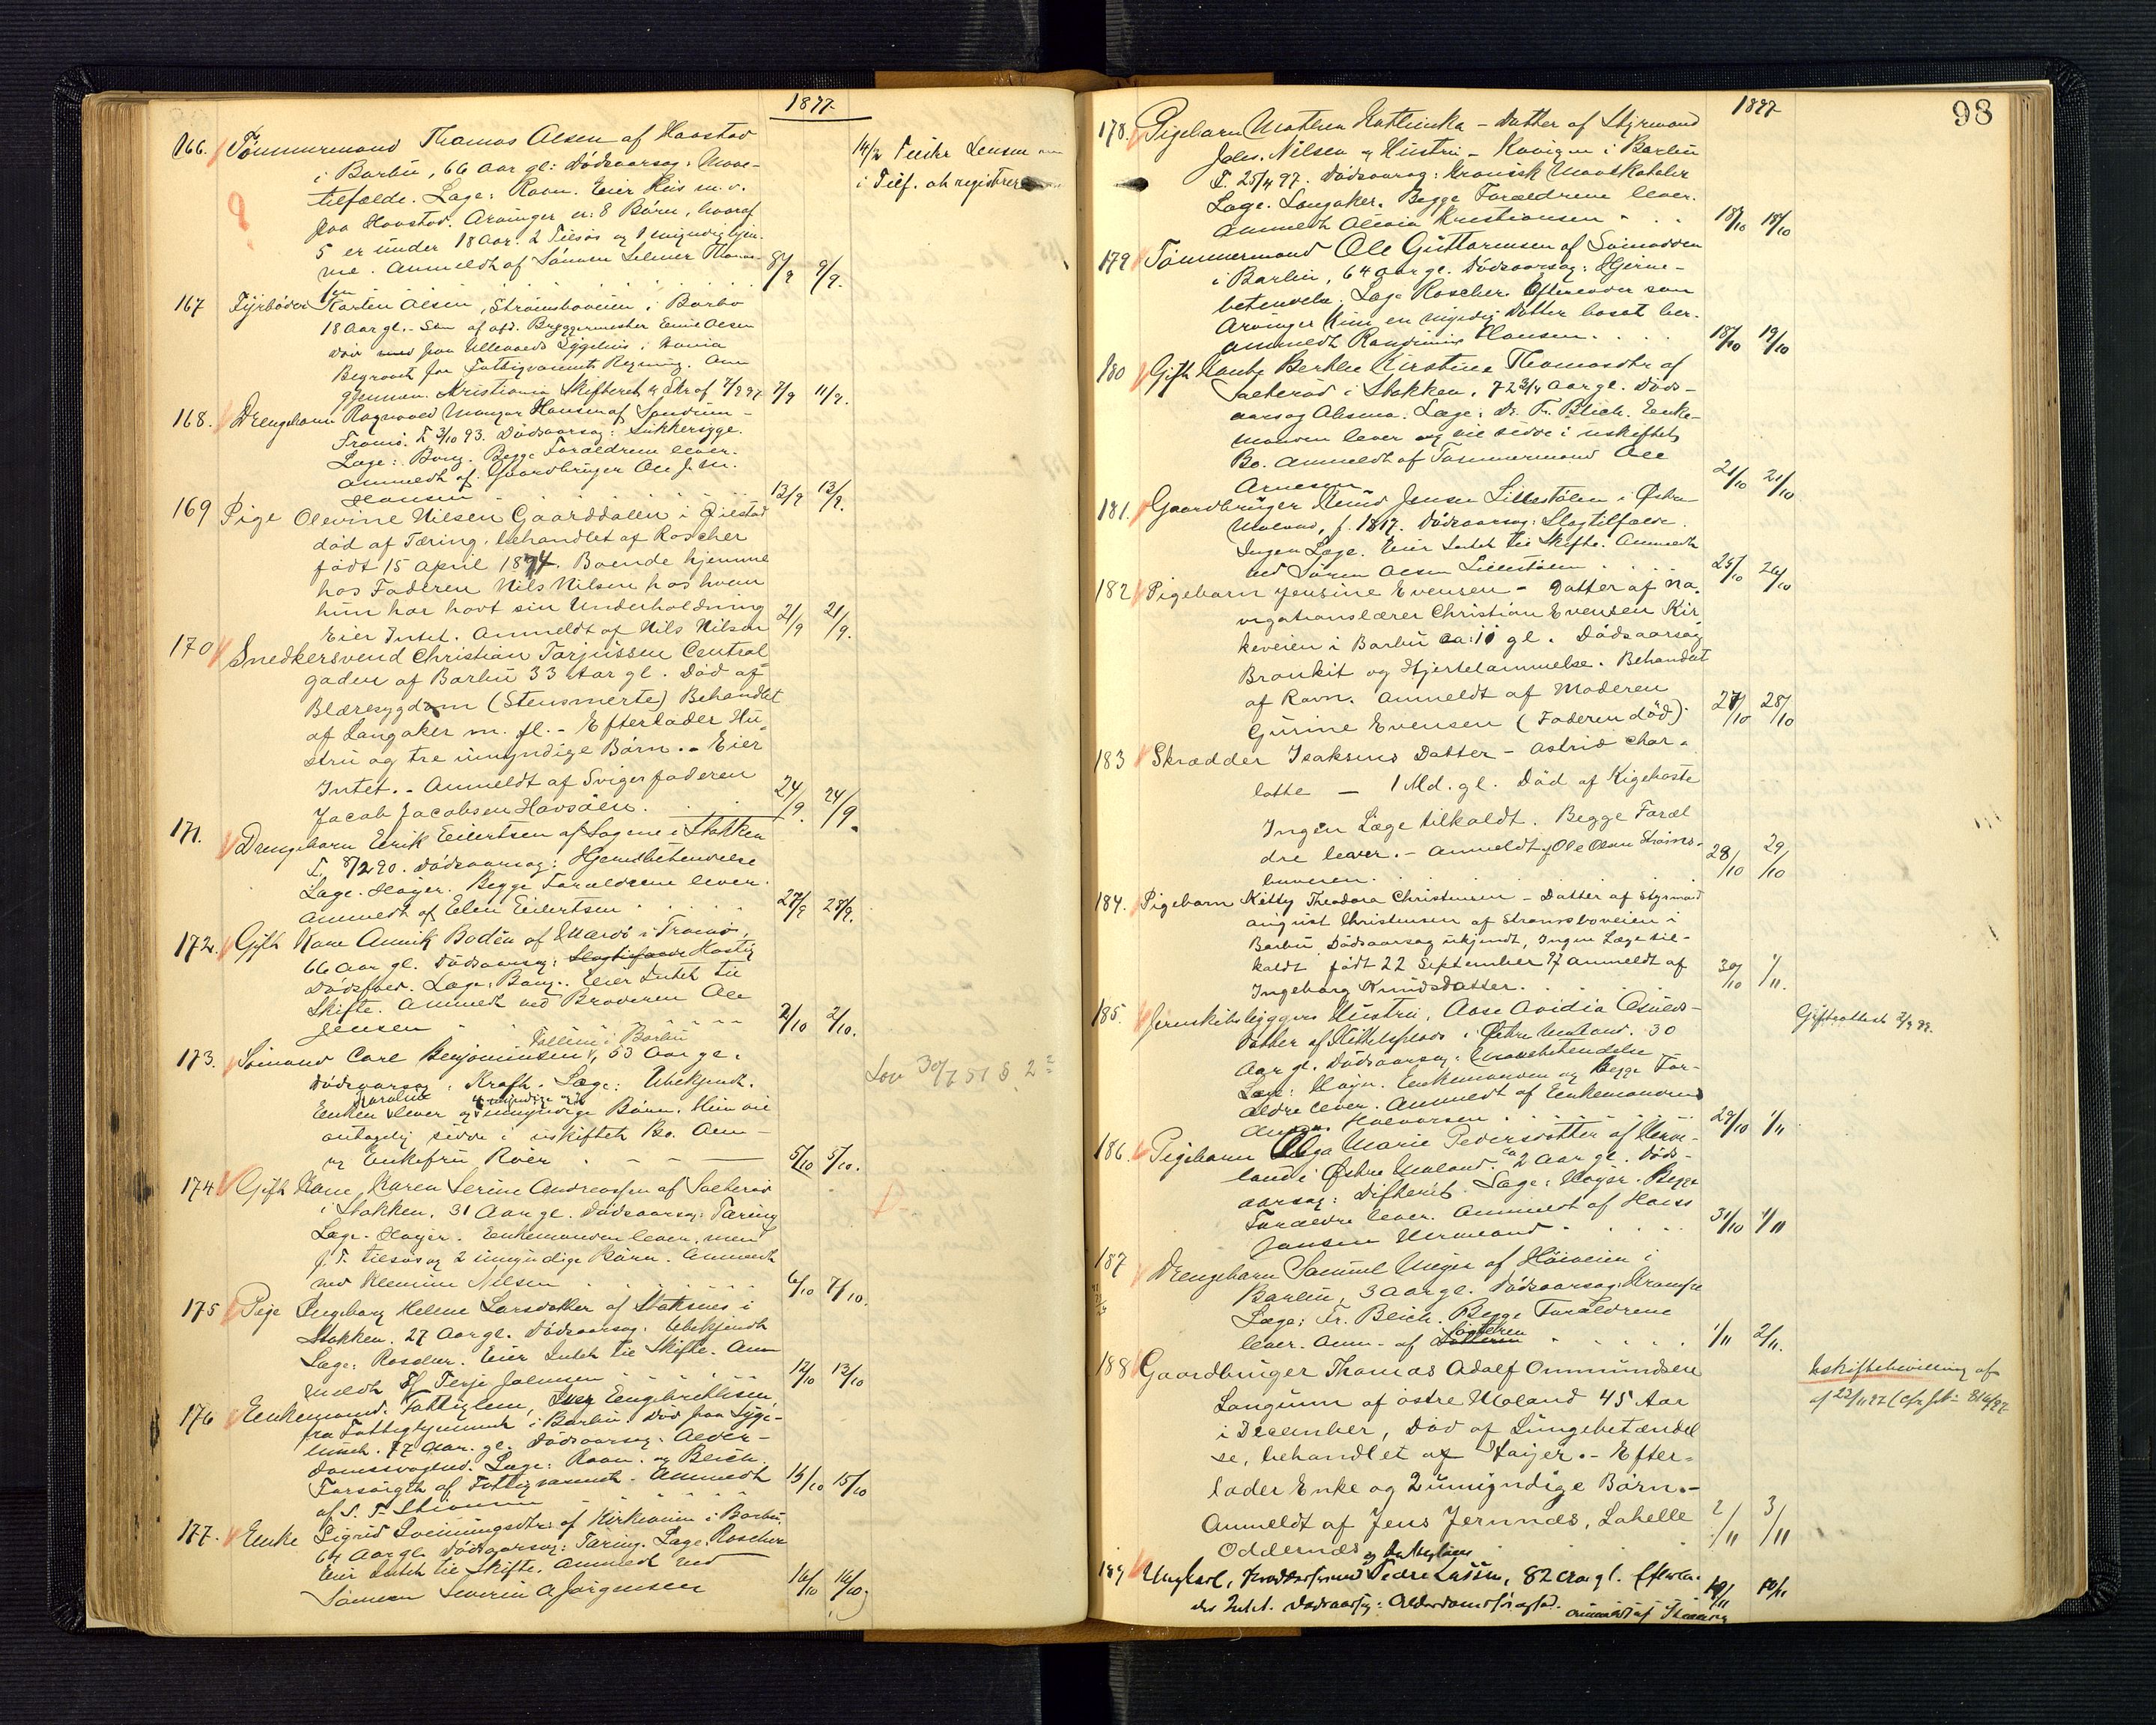 1897
166. Tømmermand Thomas Olsen af Havstad
i Barbu, 66 Aar gl: Dødsaarsag: Mave-
tilfælde. Læge: Ravn. Eier Hus m.v.
paa Havstad. Arvinger er: 8 Børn, hvoraf
5 er under 18 Aar. 2 Tilsøs og 1 myndig hjem-
me. Anmeldt af Sønnen Selmer Thomas-
sen 8/9 9/9.
14/12 
i Tilf. at registrere
167 Fyrbøder Karsten Olsen, Strømsboveien i Barbo
18 Aar gl. - Søn af afd. Byggmester Olsen
Død paa Ullevaals Sygehus i
Begravet for Fattigvæsenets Regning. Anm
gjennem Kristiania Skifteret Skr af 7/9 97 7/9 11/9.
168. Drengebarn Ragnvald Hansen af
Tromø. F 3/10 93. Dødsaarsag: Sukkersyge.
Læge: Bang. Begge Forældrene lever.
Anmeldt af Gaardbruger Ole
Hansen 13/9 13/9.
169 Pige Olevine Nilsen Gaarddalen i Øiestad
død af Tæring, behandlet af Roscher
født 15 April 1874. Boende hjemme
hos Faderen Nils Nilsen hos hvem
hun har havt sin Underholdning
Eier Intet. Anmeldt af Nils Nilsen 21/9 21/9.
170 Snedkersvend Christian Tarjussen Central
gaden af Barbu 33 Aar gl. Død af
Blæresygdom (Stensmerte) Behandlet
af Langaker m. fl. - Efterlader Hu-
stru og tre umyndige Børn. - Eier
Intet. - Anmeldt af Svigerfaderen
Jacob Jacobsen Havsøen. 24/9. 24/9.
171. Drengebarn Erik Eilertsen af Sagene i Stokken
F. 8/2 90. Dødsaarsag: Hjernebetændelse
Læge. Høyer. Begge Forældrene lever.
Anmeldt af Elen Eilertsen 27/9 28/9.
172. Gift Kone Annik Bodén af i Tromø,
66 Aar gl. Dødsaarsag: Slagtilfælde Hastig
Dødsfald. Læge: Bang. Eier Intet til
Skifte. Anmeldt ved Broderen Ole
Jensen 2/10 2/10.
173. Sømand Carl Benjaminsen, i Barbu 53 Aar gl.
Dødsaarsag: Kræft. Læge: Ubekjendt.
Enken Karoline lever og umyndige Børn. Hun vil
antagelig sidde i uskiftet Bo. Anm -
ag Enkefru Röer 5/10 5/10.
Lov 30/7 51 § 2
174 Gift Kone Karen Serine Andreassen af Sæterød
i Stokken. 31 Aar gl. Dødsaarsag: Tæring
Læge. Høyer. Enkemanden lever, men
f. T. tilsøs og 2 umyndige Børn. Anmeldt
ved Klemine Nilsen 6/10 7/10.
175 Pige Ingeborg Helene Larsdatter af Staksnes i
Stokken. 27 Aar gl. Dødsaarsag: Ubekjendt
Læge: Roscher. Eier Intet til Skifte. Anm
eldt af Terje Johnsen 12/10 13/10
176 Enkemand. Fattiglem, Iver Engbrethsen
fra Fattighjemmet i Barbu. Død paa Syge-
huset. 77 Aar. gl. Dødsaarsag: Alder-
domssvaghed. Læge: Ravn. og Blich.
Forsørget af Fattigvæsenet. Anmeldt
af S. T. 15/10 15/10
177. Enke Sigrid Sveinungsdtr. af Kirkeveien i Barbu.
64 Aar gl. Dødsaarsag: Tæring. Læge: Roscher
Eier Intet til Skifte. Anmeldt ved
Sønnen Severin A. Jørgensen 16/10 16/10
1897
98
178. Pigebarn Mathea Kathinka - Datter af Styrmand
Johs. Nilsen og Hustru - Kovigen i Barbu
F. 25/4 97. Dødsaarsag: Kronisk Mavekatahr
Læge. Langaker. Begge Forældrene lever.
Anmeldt Olevia Kristiansen 18/10 18/10
179 Tømmermand Ole Guttormsen af Suinodden
i Barbu, 64 Aar gl. Dødsaarsag: Hjerne-
betændelse. Læge Roscher. Efterlader som
Arvinger kun en myndig Datter bosat her.
Anmeldt Hansen. 18/10 19/10
180 Gift Kone Berthe Kirstine Thomasdtr af
Sæterød i Stokken, 72 3/4 Aar gl. Døds-
aarsag Alsma. Læge: Dr. Fr. Blich. Enke-
manden lever og vil sidde i uskiftet
Bo. Anmeldt af Tømmermand Ole
Arnesen 21/10 21/10
181. Gaardbruger Knud Jensen Lillestølen i Østre
Moland, f. 1817. Dødsaarsag: Slagtilfælde.
Ingen Læge. Eier Intet til Skifte. Anmeldt
ved Søren Olsen Lillestølen 25/10 26/10
182 Pigebarn Jensine Evensen - Datter af Na-
vigationslærer Christian Evensen Kir
keveien i Barbu ca: 11 gl. Dødsaarsag
Bronkit og Hjertelammelse. Behandlet
af Ravn. Anmeldt af Moderen
Gurine Evensen (Faderen død). 27/10 28/10
183 Skrædder Isaksens Datter - Astrid Char-
lotte - 1 Md. gl. Død af Kighoste
Ingen Læge tilkaldt. Begge Foræl
dre lever. - Anmeldt af Ole Olsen Strøms-
buveien. 28/10 29/10
184. Pigebarn Kitty Theodora Christensen - Datter af Styrmand
August Christensen af Strømsboveien i
Barbu Dødsaarsag ukjendt, Ingen Læge til-
kaldt født 22 September 97 anmeldt af
Ingeborg Knudsdatter. 30/10 1/11.
185. Jernskibsbyggers Hustru, Aase Ovidia Osulds-
datter af i Østre Moland. 30
Aar gl. Dødsaarsag: Mavebetændelse
Læge: Høyer. Enkemanden og Begge For-
ældre lever. Anmeldt af Enkemanden
Halvorsen 29/10 1/11
Giftattest 2/7 99.
186. Pigebarn Olga Marie Pedersdatter af Herme-
land i Østre Moland. ca 2 Aar gl. Døds-
aarsag: Difterit. Læge: Høyer. Begge
Forældre lever. Anmeldt af Hans
Jensen 31/10 1/11
187 Drengebarn Samuel Meyer af Høiveien i
Barbu, 3 Aar gl. Dødsaarsag: Krampe
Læge: Fr. Blich. Begge Forældrene
lever. Anm - af Søsteren 1/11 2/11.
188 Gaardbruger Thomas Adolf Ommundsen
Langum af østre Moland 45 Aar
i December, Død af Lungebetændel
se, behandlet af Høijer. - Efter-
lader Enke og 2 umyndige Børn. -
Anmeldt af Jens Jernnæs, Lahelle
Oddernæs 2/11 3/11
Uskiftebevilling af
af 22/11 97
189 Ungkarl, 82 Aar gl. Efterla-
der Intet. Dødsaarsag: Alderdomssvaghed. Anmeldt af 10/11 10/11